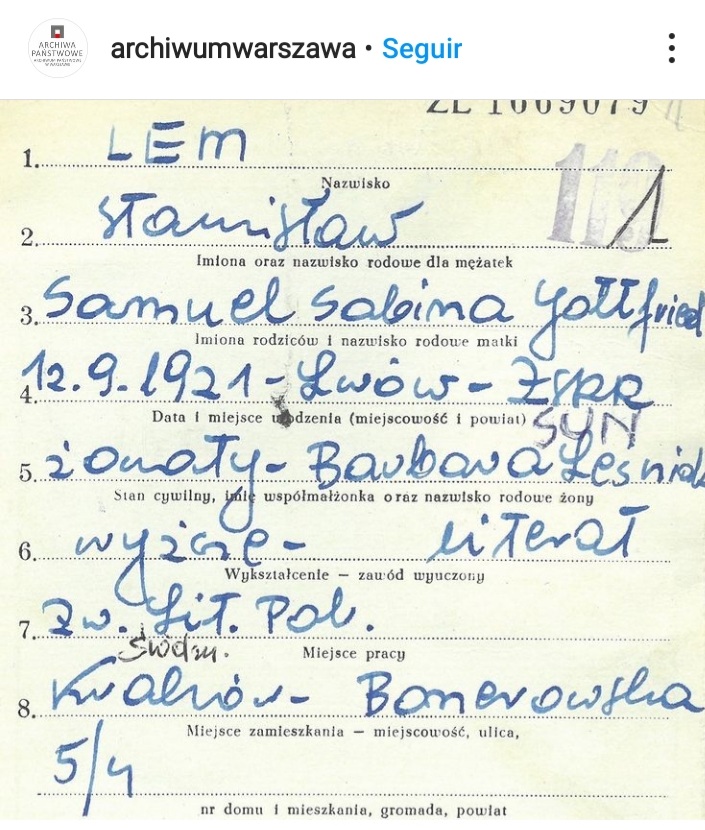 ARCHIWA
PAŃSTWOWE
archiwumwarszawa • Seguir
ZL 1669079
1. LEM
Nazwisko
110 1
2. Stanisław
Imiona oraz nazwisko rodowe dla mężatek
3. Samuel Sabina Gottfried
Imiona rodziców i nazwisko rodowe matki
4. 12.9.1921 - Lwów - ZSRR
Data i miejsce urodzenia (miejscowość i powiat)
SYN
5. żonaty - Barbara Leśniak
Stan cywilny, imię współmałżonka oraz nazwisko rodowe żony
6. wyższe - literat
Wykształcenie — zawód wyuczony
7. Zw. Lit. Pol.
Miejsce pracy
8. Kraków - Bonerowska
Miejsce zamieszkania — miejscowość, ulica,
5/4
nr domu i mieszkania, gromada, powiat